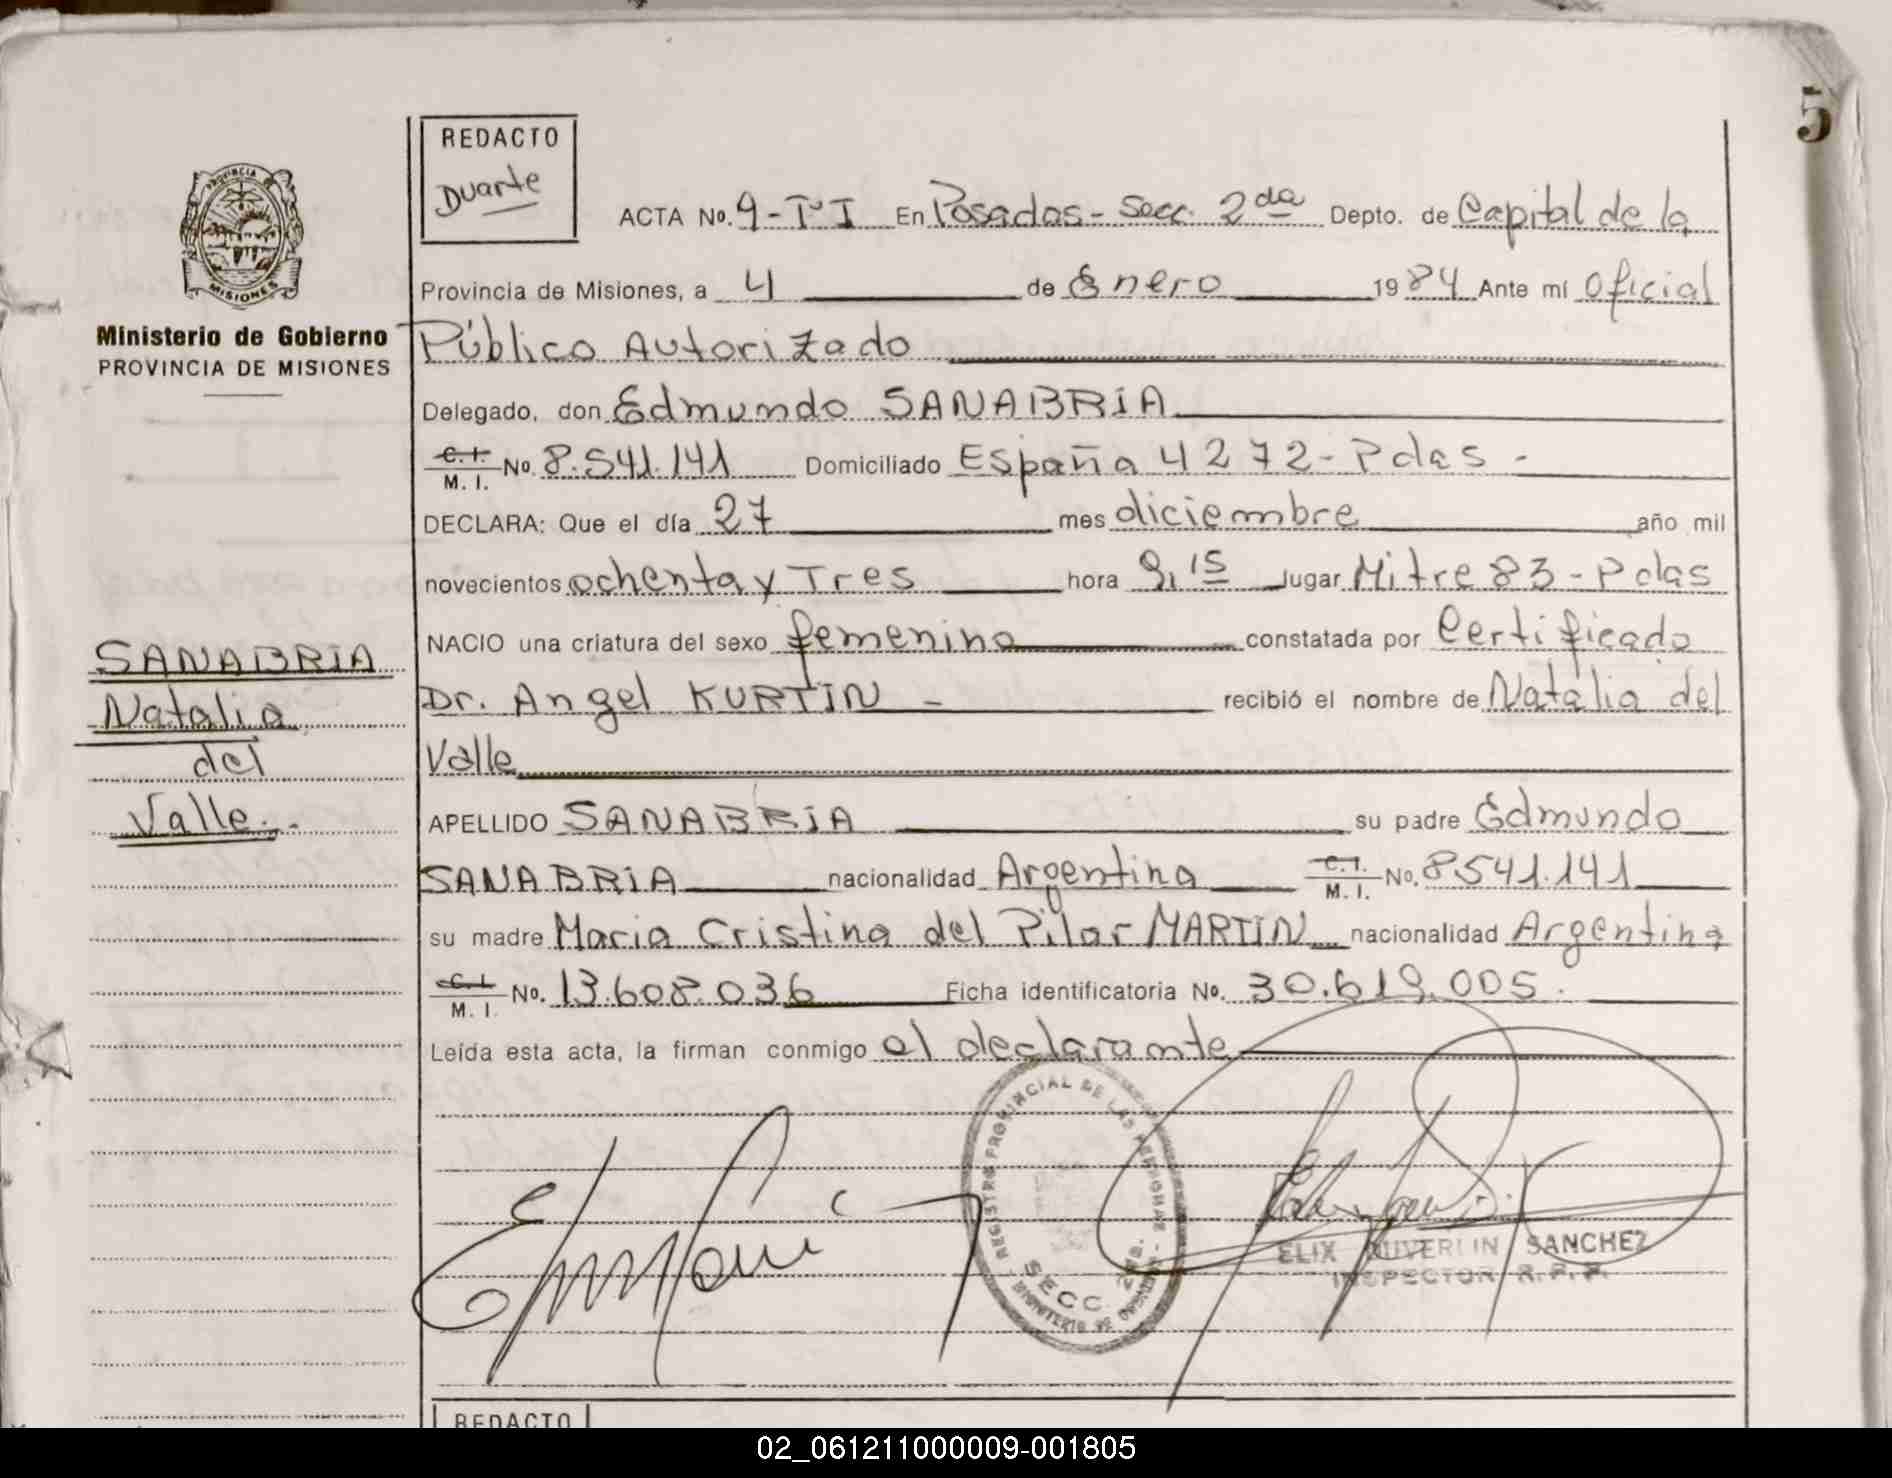 5
REDACTO
Duarte
PROVINCIA DE
MISIONES
Ministerio de Gobierno
PROVINCIA DE MISIONES
ACTA No. 9-TºI En Posadas - Secc. 2da Depto. de Capital de la
Provincia de Misiones, a 4 de Enero 1984 Ante mí Oficial
Público Autorizado
Delegado, don Edmundo SANABRIA
C. I. M. I. No. 8.541.141 Domiciliado España 4272 - Pdas -
DECLARA: Que el día 27 mes diciembre año mil
novecientos ochenta y Tres hora 9,15 lugar Mitre 83 - Pdas
NACIO una criatura del sexo femenino constatada por Certificado
Dr. Angel KURTIN - recibió el nombre de Natalia del
Valle
APELLIDO SANABRIA su padre Edmundo
SANABRIA nacionalidad Argentina C. I. M. I. No. 8541.141
su madre Maria Cristina del Pilar MARTIN nacionalidad Argentina
C. I. M. I. No. 13.608.036 Ficha identificatoria No. 30.619.005.
Leída esta acta, la firman conmigo el declarante
SANABRIA
Natalia
del
Valle.
REGISTRO PROVINCIAL DE LAS PERSONAS
SECC. 2da.
MINISTERIO DE GOBIERNO
SANCHEZ
INSPECTOR R. P. P.
REDACTO
02_061211000009-001805